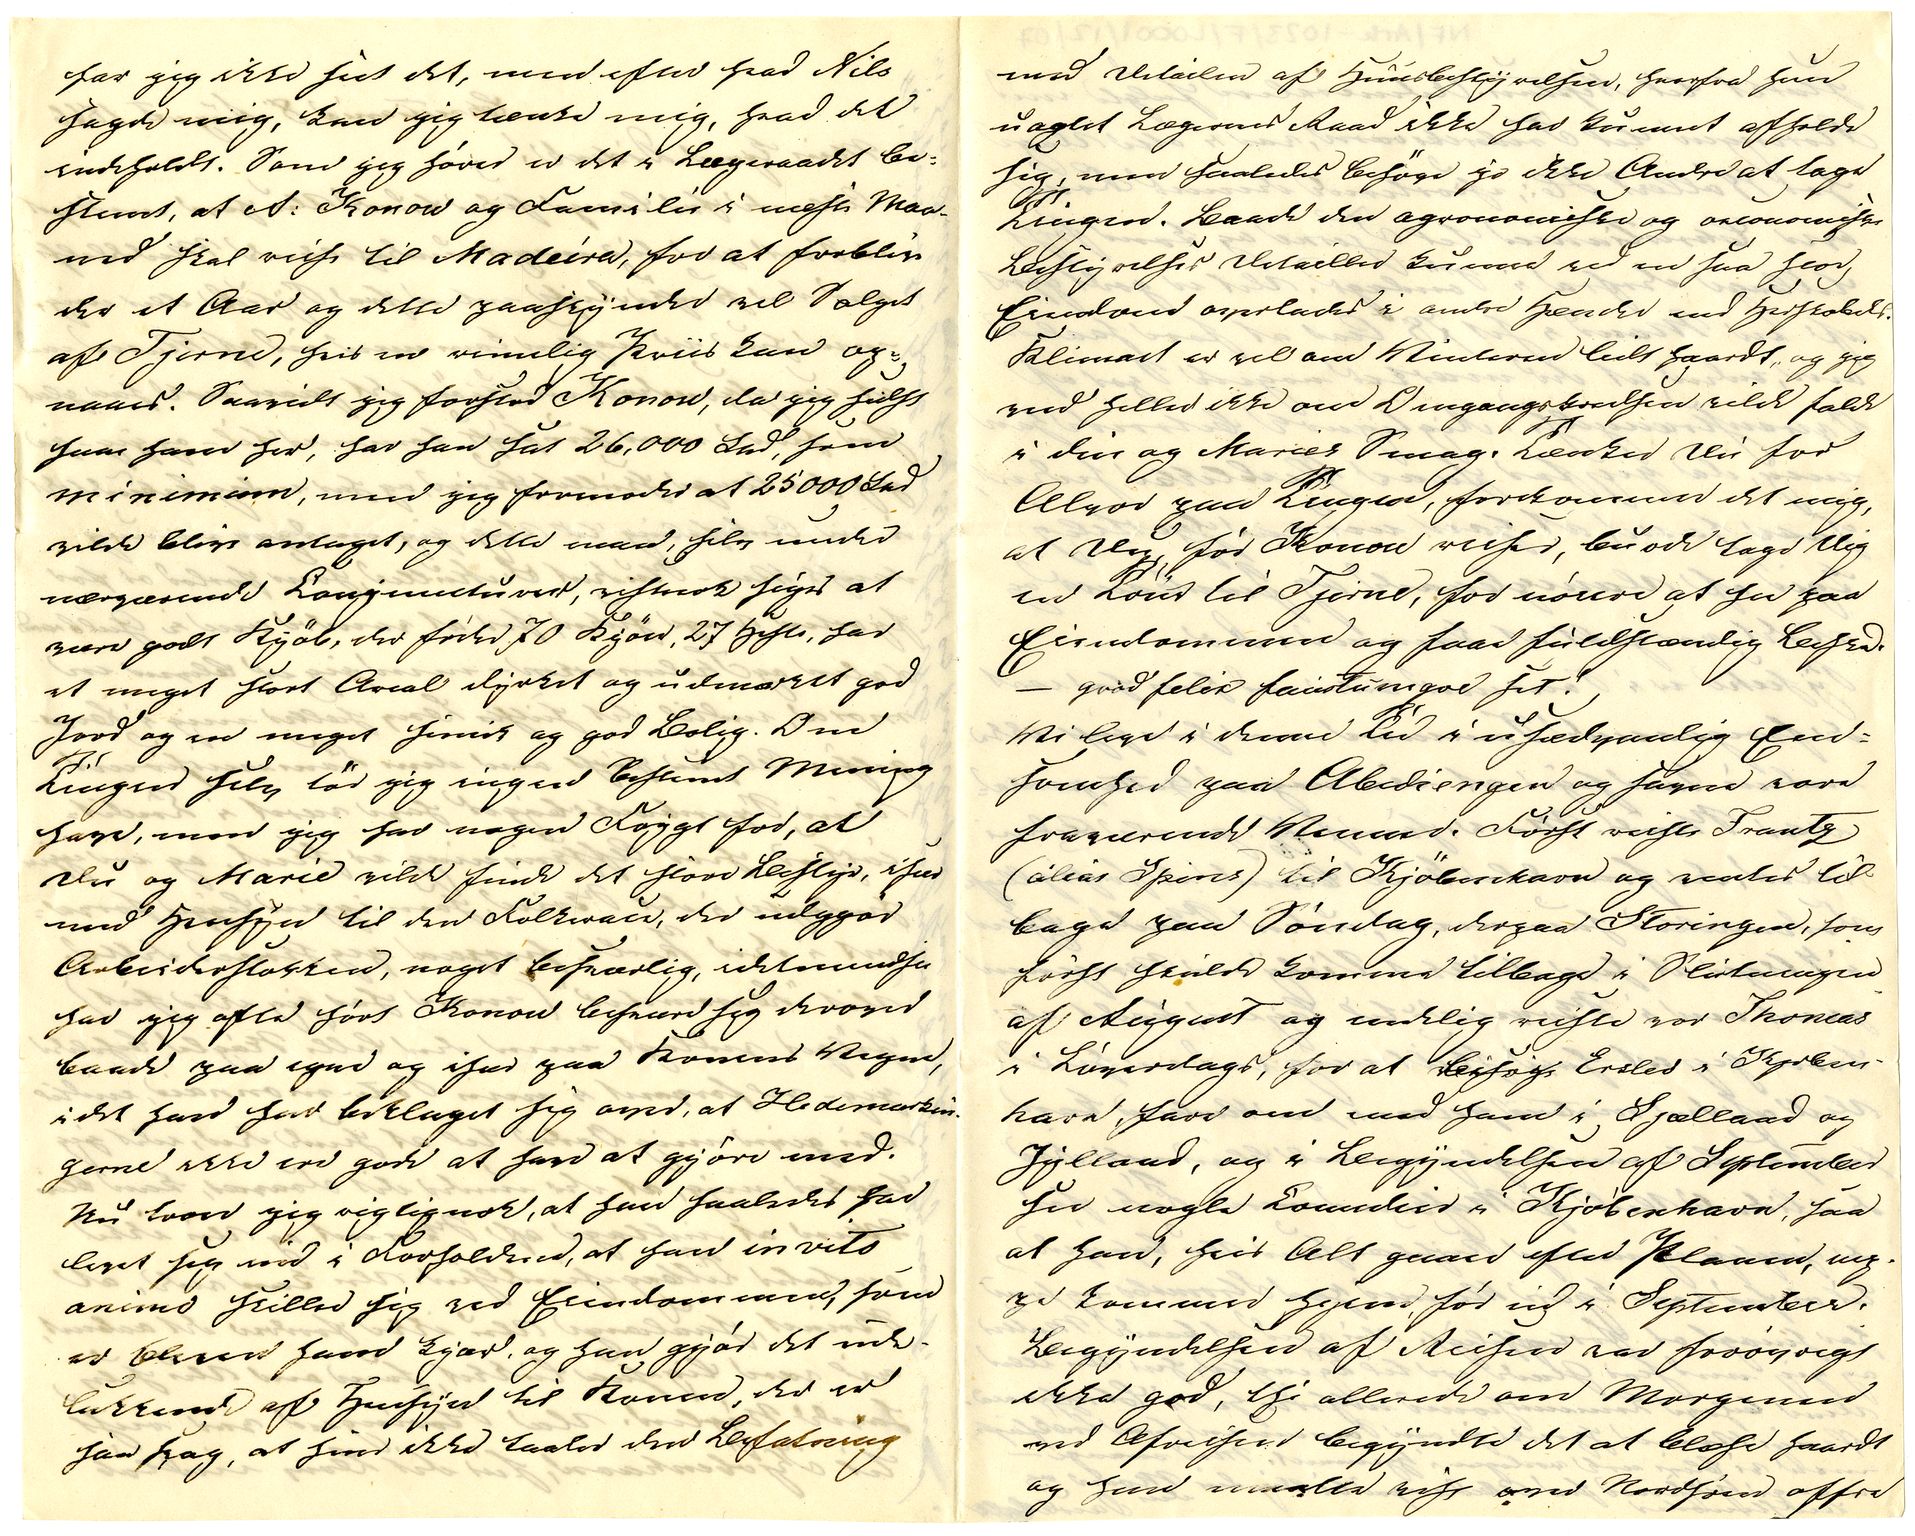 har jeg ikke seet det, men efter hvad Nils
sagde mig, kan jeg tænke mig, hvad det
indeholdt. Som jeg hører er det i Lægeraadet be-
stemt, at A: Konow og Familie i næste Maa-
ned skal reise til Madeira, for at forblive
der et Aar og dette paaskynder vel Salget
af Tjerne, hvis en rimelig Priis kan op-
naaes. Saavidt jeg forstod Konow, da jeg sidst
saae ham her, har han sat 26,000 Spd, som
minimum, men jeg formoder at 25000 Spd
vilde blive antaget, og dette maa, selv under
nærværende Conjuncturer, vistnok siges at
være godt Kjöb, der födes 70 Kjör, 27 Heste, har
et meget stort Areal dyrket og udmærket god
Jord og en meget smuk og god Bolig. Om
Tingen selv tör jeg ingen bestemt Mening
have, men jeg har nogen Frygt for, at
Du og Marie vilde finde det store Bestyr, især
med Hensyn til den Folkerace, der udgjör
Arbeiderstokken, noget besværlig, idetmindste
har jeg ofte hört Konow besvære sig derover
baade paa egne og især paa Konens Vegne,
idet han har beklaget sig over, at Hedemarkin-
gerne ikke ere gode at have at gjöre med.
Nu troer jeg rigtignok, at han saaledes har
levet sig ind i Forholdene, at han invito
animo skiller sig ved Eiendommen, som
er bleven ham kjær, og han gjör det ude-
lukkende af Hensyn til Konen, der er
saa svag, at hun ikke taaler den Befatning
med Detailen af Huusbestyrelsen, hvorfra hun
uagtet Lægernes Raad ikke har kunnet afholde
sig, men saaledes behöve jo ikke Andre at tage
Tingen. Baade den agronomiske og oeconomiske
Bestyrelses Detailler kunne ved en saa stor
Eiendom overlades i andre Hænder end Herskabets.
Klimaet er vel om Vinteren lidt haardt, og jeg
veed heller ikke om Omgangskredsen vilde falde
i din og Maries Smag. Tænker Du for
Alvor paa Tingen, forekommer det mig,
at Du, för Konow reiser, burde tage Dig
en Tour til Tjerne, for nöiere at see paa
Eiendommen og faae fuldstændig Besked.
— quod felix faustumque sit!
Vi leve i denne Tid i usædvanlig Een-
somhed paa Abediengen og savne vore
fraværende Venner. Först reiste Frantz
(alias Spirez) til Kjöbenhavn og ventes til-
bage paa Söndag, derpaa Storingen, som
först skulde komme tilbage i Slutningen
af August og endelig reiste vor Thomas
i Löverdags, for at besöge Erslev i Kjöben-
havn, fare om med ham i Sjælland og
Jylland, og i Begyndelsen af September
see nogle Comedier i Kjöbenhavn, saa
at han, hvis Alt gaaer efter Planen, nep-
pe kommer hjem, för ud i September.
Begyndelsen af Reisen var forövrigt
ikke god, thi allerede om Morgenen
ved Afreisen begyndte det at blæse haardt
og han maatte vist over Nordsöen offre